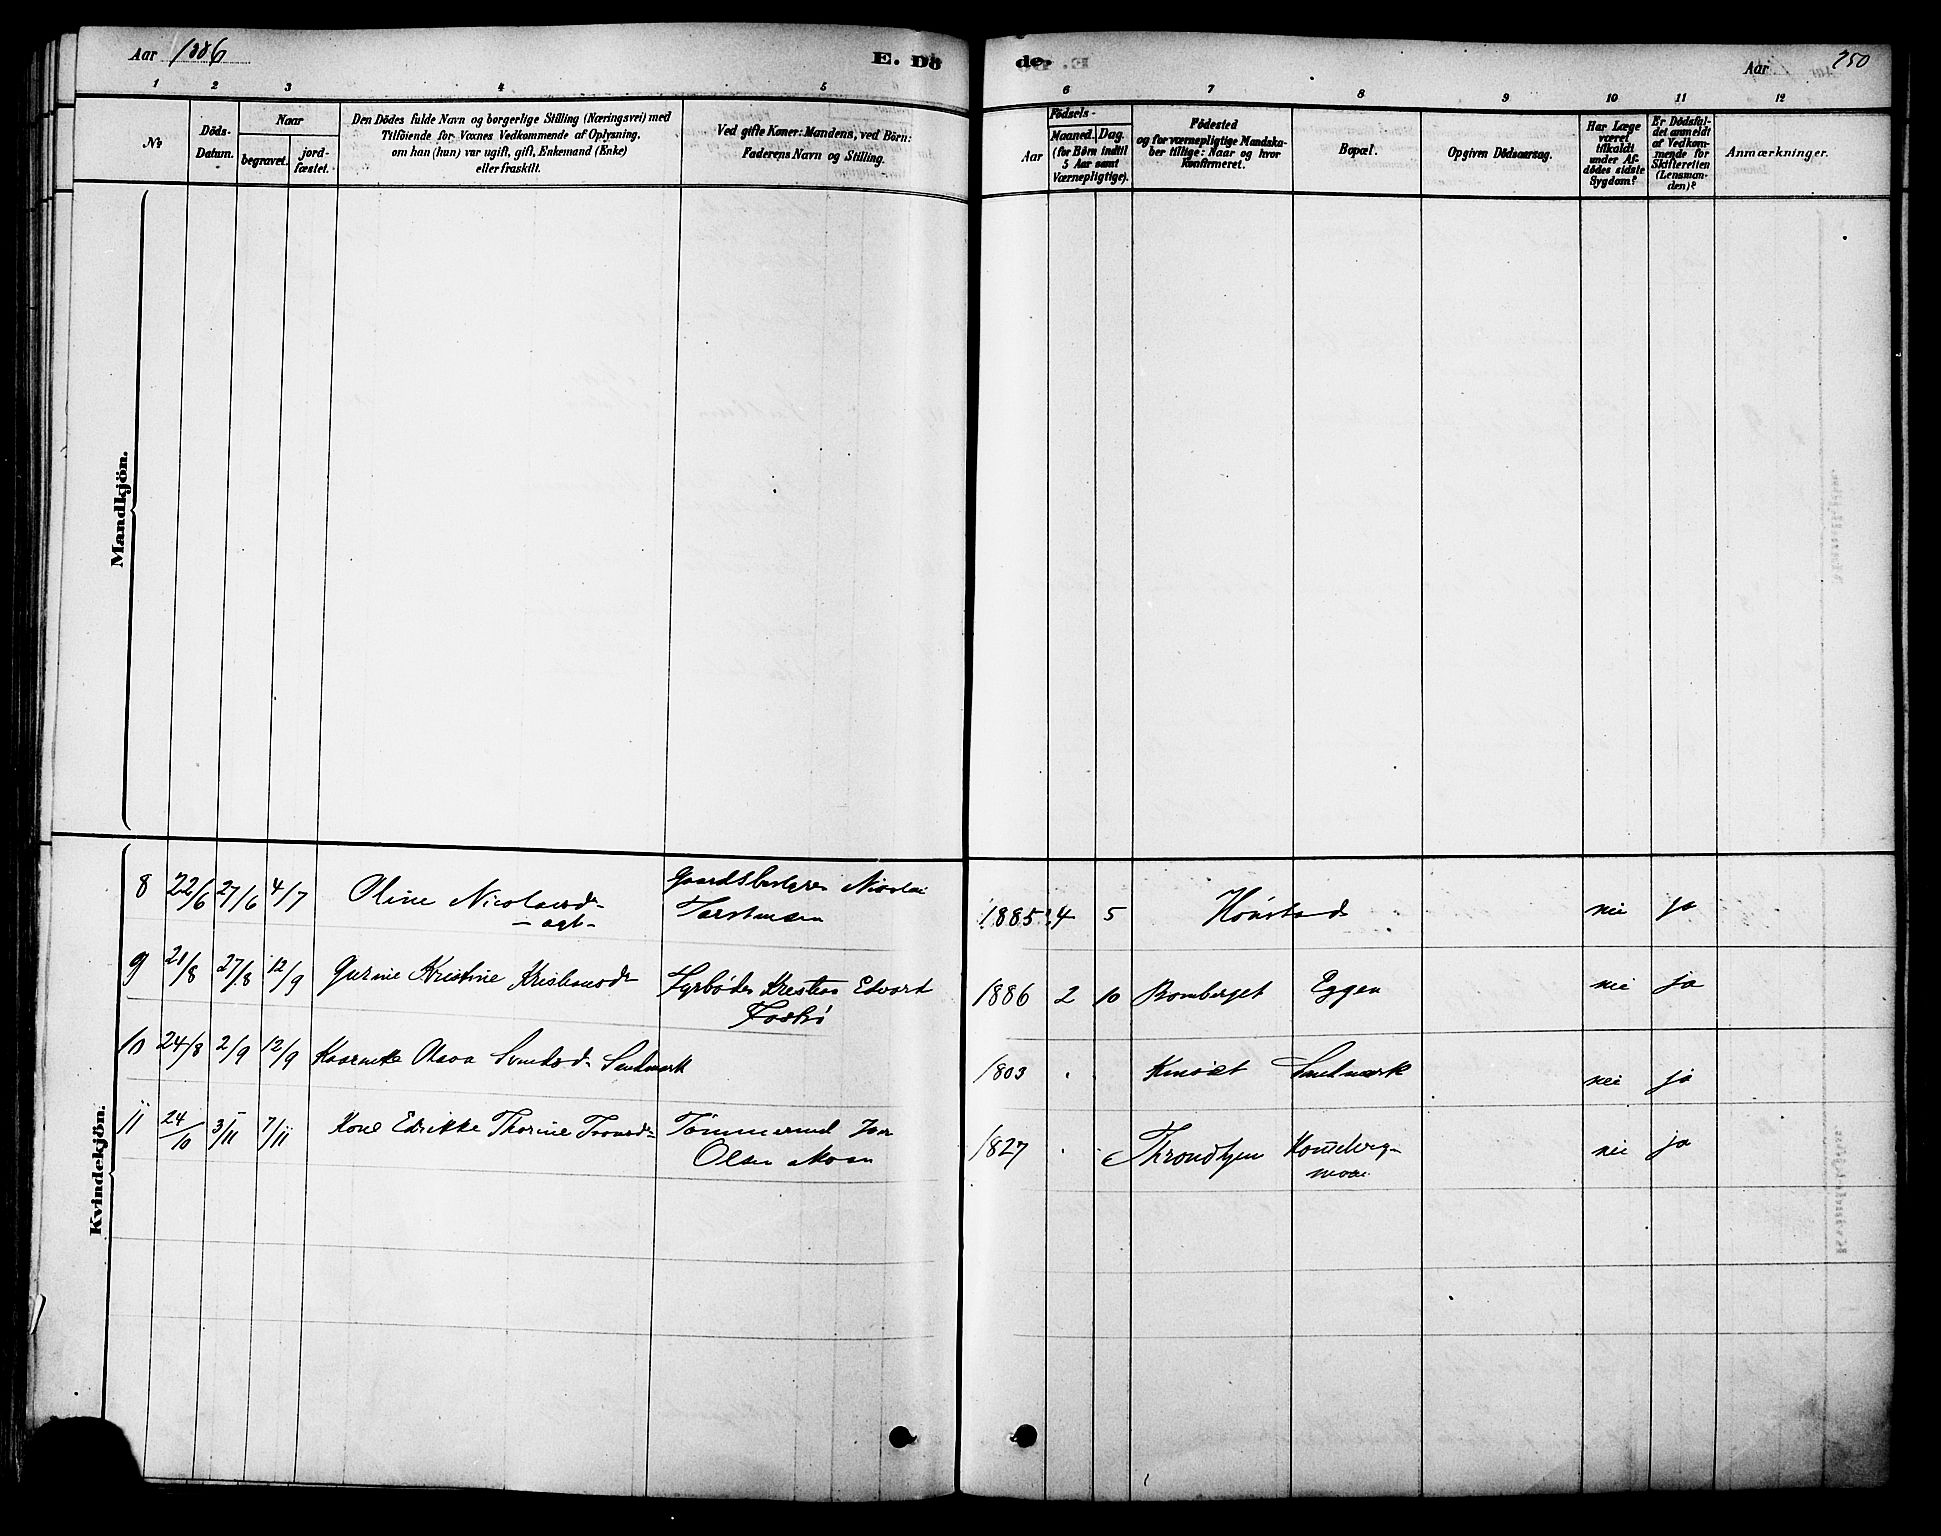 Aar 1886
E. Dö
de.
Aar
250
1 2 3 4 5 6 7 8 9 10 11 12
No
Döds-
Datum.
Naar
begravet.
jord-
fæstet.
Den Dödes fulde Navn og borgerlige Stilling (Næringsvei) med
Tilföiende for Voxnes Vedkommende af Oplysning,
om han (hun) var ugift, gift, Enkemand (Enke)
eller fraskilt.
Ved gifte Koner: Mandens, ved Börn:
Faderens Navn og Stilling.
Födsels-
Aar
Maaned.
Dag.
(for Börn indtil
5 Aar samt
Værnepligtige).
Födested
og for værnepligtige Mandska-
ber tillige: Naar og hvor
konfirmeret.
Bopæl.
Opgiven Dödsaarsag.
Har Læge
været
tilkaldt
under Af-
dödes sidste
Sygdom?
Er Dödsfal-
det anmeldt
af Vedkom-
mende for
Skifteretten
(Lensman-
den)?
Anmærkninger.
Mandkjön.
Kvindekjön.
8 22/6 27/6 4/7 Oline Nicolaisd- Gaardsbestyrer Nicolai
Torstensen
1885 4 5 Hönstad nei ja
9 21/8 27/8 12/9 Gurine Kristine Kristiansd- Fyrböder Kristian Edvard
1886 2 10 Romberget Eggen nei ja
10 24/8 2/9 12/9 Olava Svendsd- Sandmark
1803 Sandmark nei ja
11 24/10 3/11 7/11 Kone Edrikke Thorine Tronsd- Tømmermd
Olsen Moan
1827 Throndhjem nei ja